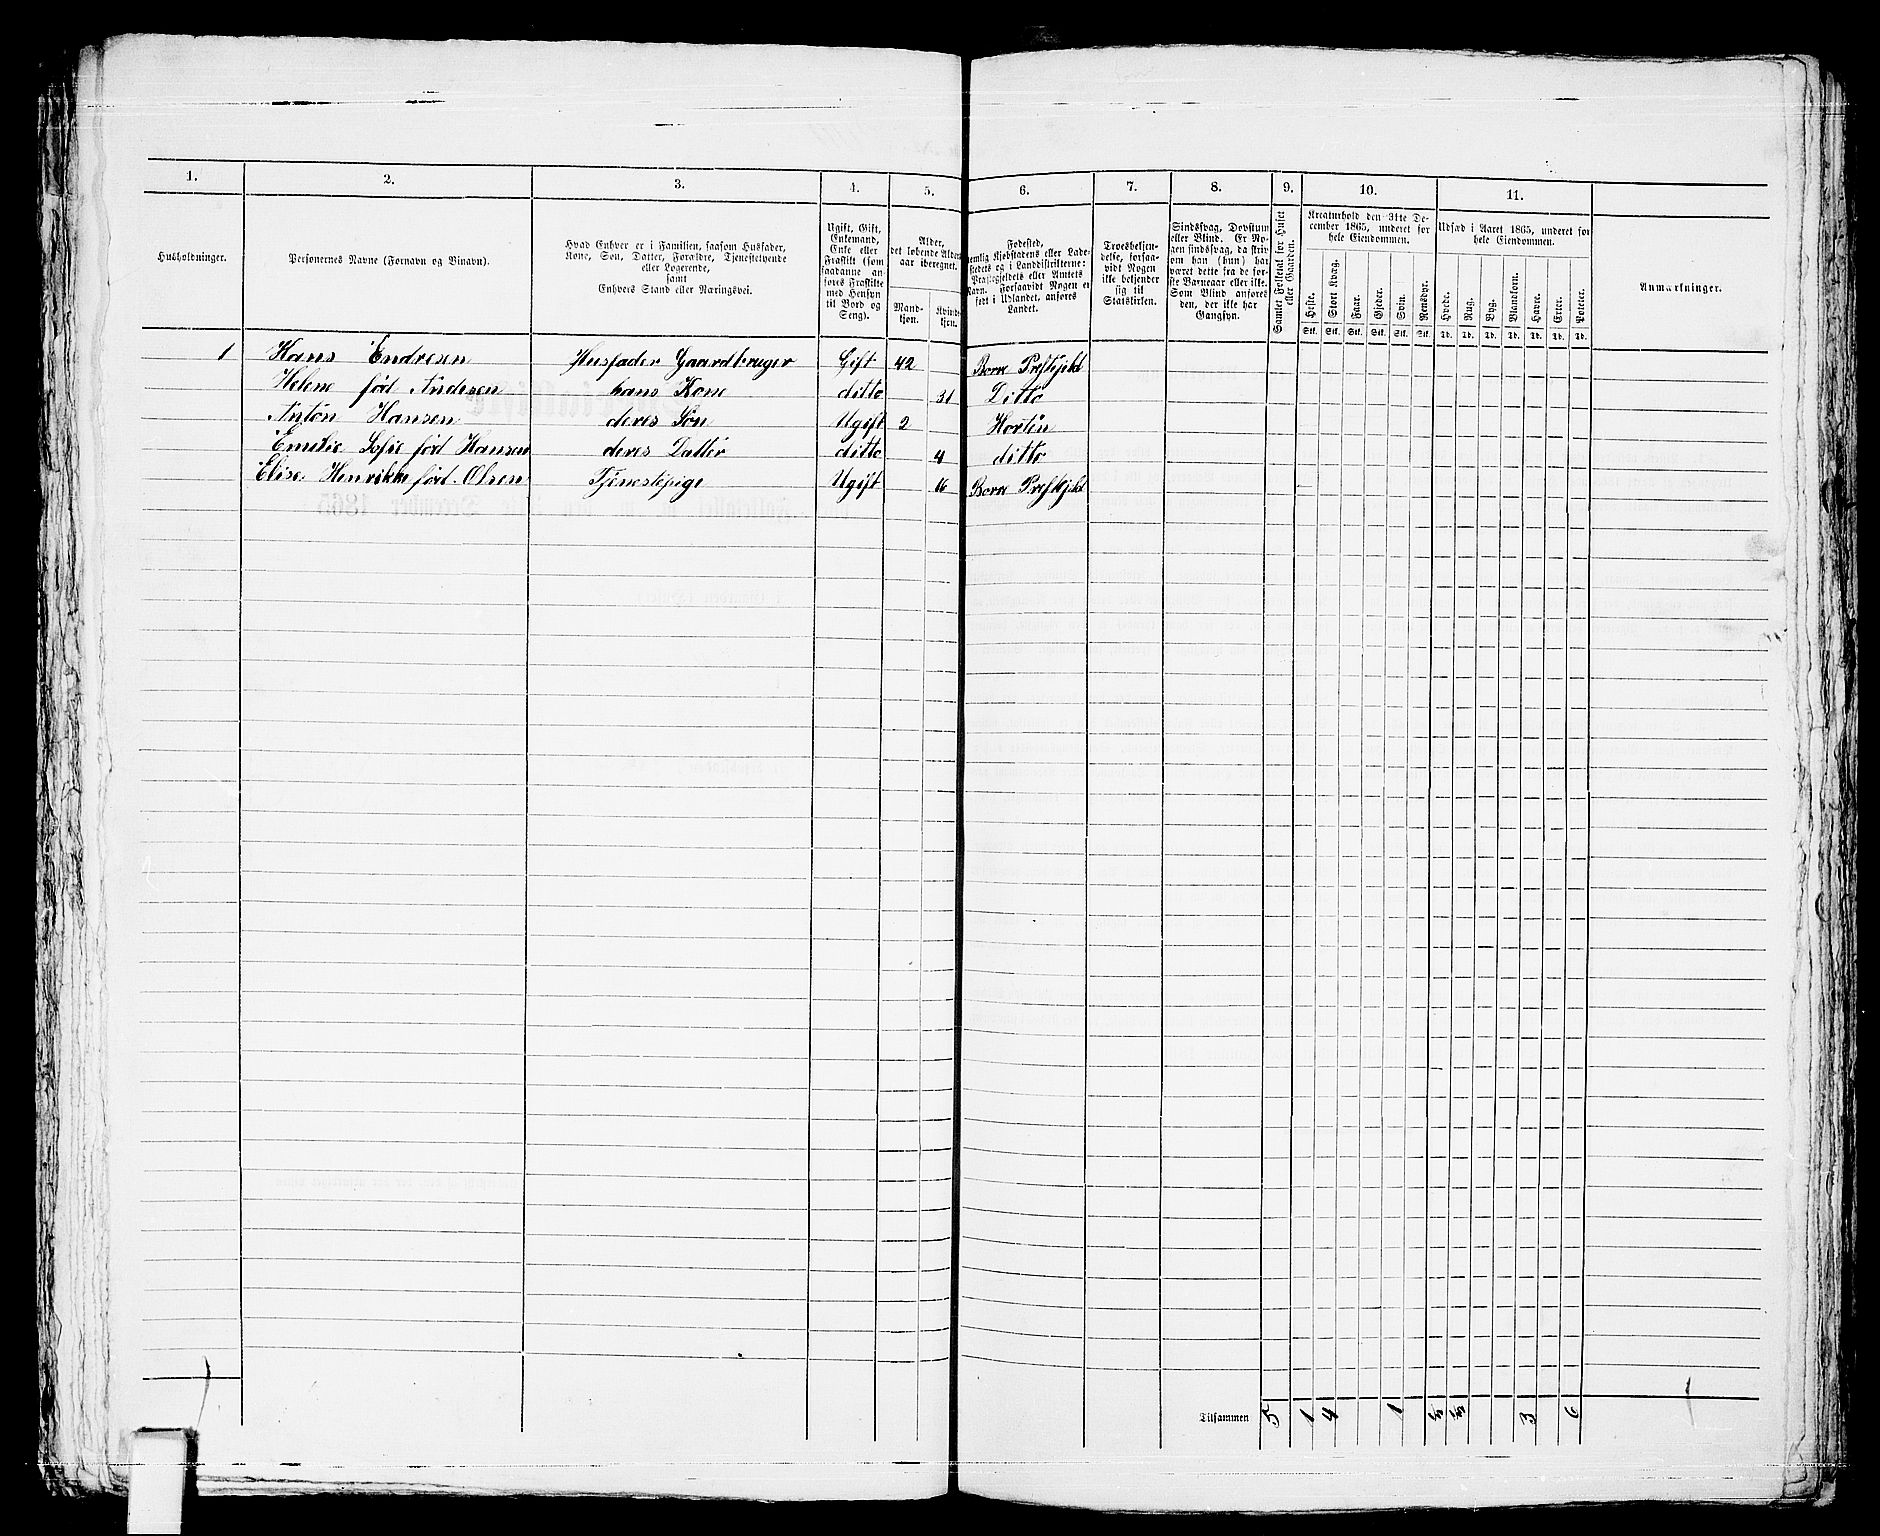 1. 2. 3. 4. 5. 6. 7. 8. 9. 10. 11.
Husholdninger.
Personernes Navne (Fornavn og Vinavn).
Hvad Enhver er i Familien, saasom Husfader,
Kone, Søn, Datter, Forældre, Tjenestetyende
eller Logerende,
samt
Enhvers Stand eller Næringsvei.
Ugift, Gift,
Enkemand,
Enke eller
Fraskilt (som
saadanne an-
føres Fraskilte
med Hensyn
til Bord og
Seng).
Alder,
det løbende Alders-
aar iberegnet.
Mand-
kjøn.
Kvind-
kjøn.
Fødested,
nemlig Kjøbstadens eller Lade-
stedets og i Landdistrikterne:
Præstegjeldets eller Amtets
Navn. Forsaavidt Nogen er
født i Udlandet, anføres
Landet.
Troesbekjen-
delse, forsaa-
vidt Nogen
ikke bekjender
sig til
Statskirken.
Sindssvag, Døvstum
eller Blind. Er No-
gen sindssvag, da skriv
om han (hun) har
været dette fra de før-
ste Barneaar eller ikke.
Som Blind anføres
den, der ikke har
Gangsyn.
Samlet Folketal for Huset
eller Gaarden.
Kreaturhold den 31te De-
cember 1865, underet for
hele Eiendommen.
Heste. Stort Kvæg. Faar. Gjeder. Svin. Rensdyr.
Stk. Stk. Stk. Stk. Stk. Stk.
Udsæd i Aaret 1865, underet for
hele Eiendommen.
Hvede. Rug. Byg. Blandkorn. Havre. Erter. Poteter.
Td. Td. Td. Td. Td. Td. Td.
Anmærkninger.
1 Hans Endresen Husfader Gaardbruger Gift 42 Borre Præstgjeld
Helene fød Andersen hans Kone ditto 31 Ditto
Anton Hansen deres Søn Ugift 2 Horten
Emilie Sofie fød Hansen deres Datter ditto 4 ditto
Elise Henrikke fød Olsen Tjenestepige Ugift 16 Borre Præstgjeld
Tilsammen 5 1 4 1 3 6